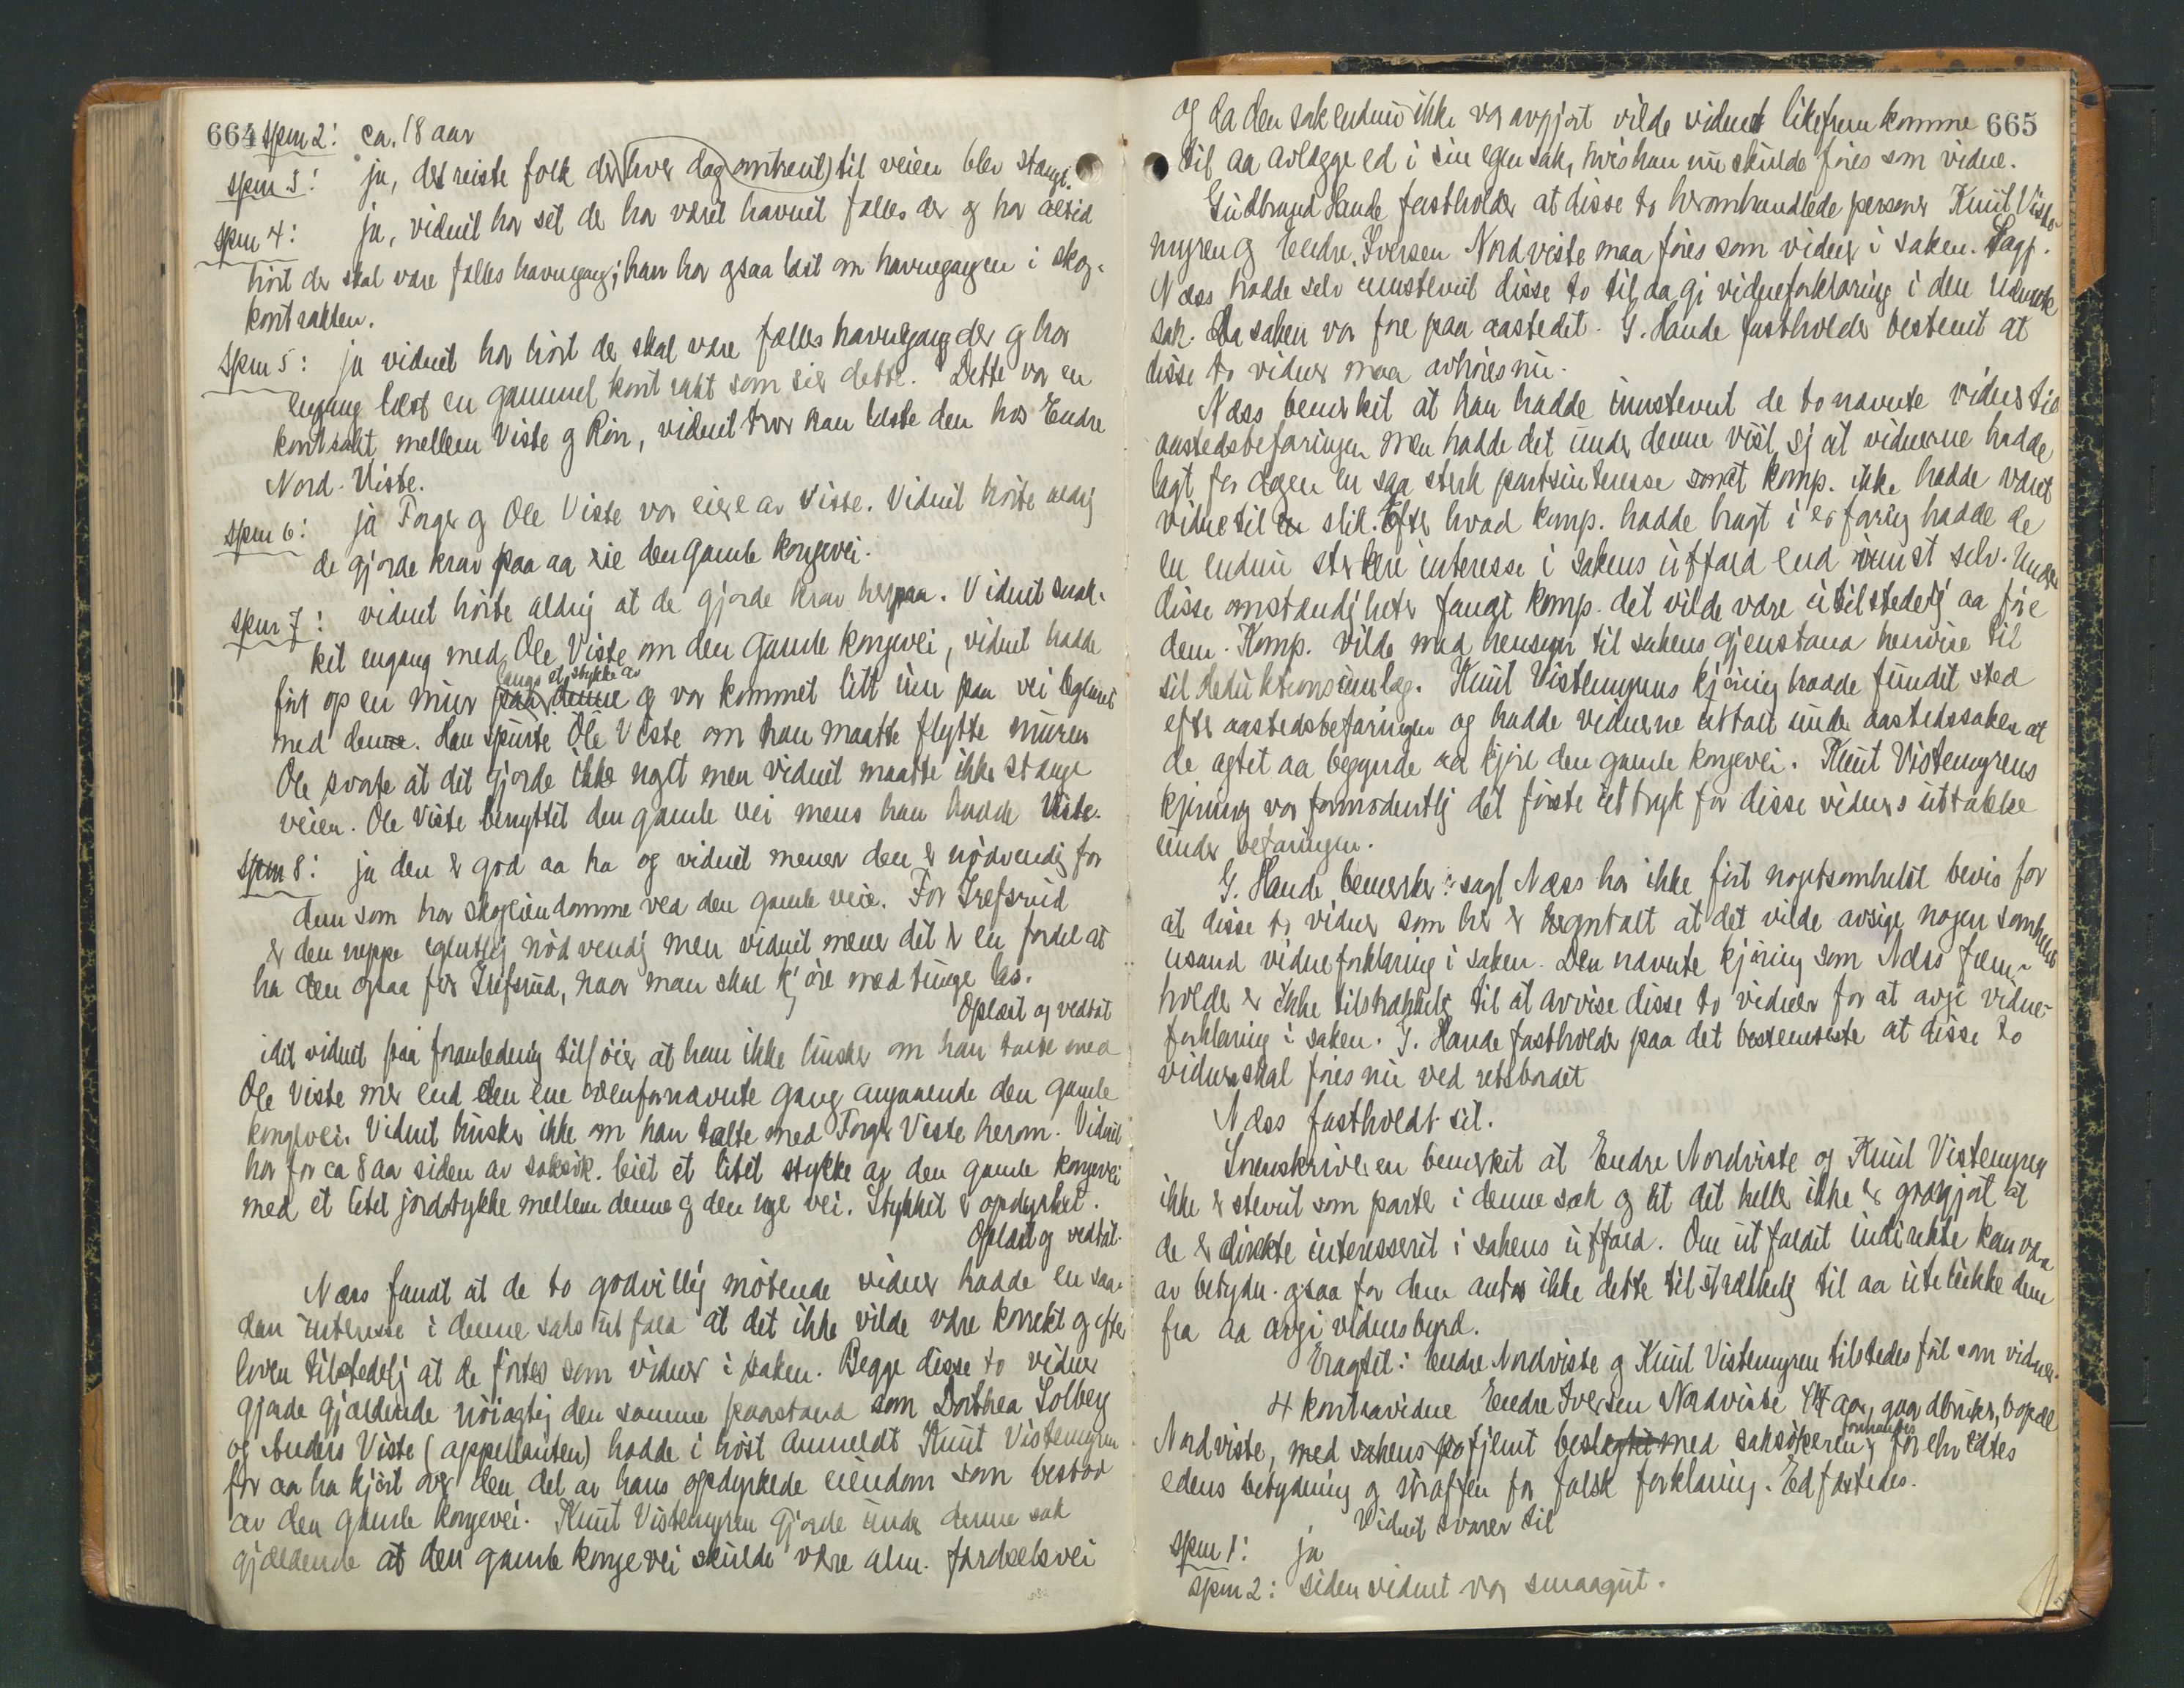 664
spm 2: ca. 18 aar
spm 3: ja, det reiste folk der (hver dag omtrent) til veien blev stængt.
spm 4: ja, vidnet har set de har været havnet fælles der og har altid
hört der skal være fælles havnegang; han har ogsaa læst om havnegangen i skog-
kontrakten.
spm 5: ja vidnet har hört der skal være fælles havnegang der og har
engang læst en gammel kontrakt som sier dette. Dette var en
kontrakt mellem Viste og Rön, vidnet tror han læste den hos Endre
Nord-Viste.
spm 6: ja Torger og Ole Viste var eiere av Viste. Vidnet hörte aldrig
de gjorde krav paa aa eie den gamle kongevei.
spm 7: vidnet hörte aldrig at de gjorde krav herpaa. Vidnet snak-
ket engang med Ole Viste om den gamle kongevei, vidnet hadde
langs et stykke av
fört op en mur paa denne og var kommet litt inn paa vei leglemet
med denne. Han spurte Ole Viste om han maatte flytte muren
Ole svarte at det gjorde ikke noget men vidnet maatte ikke stænge
veien. Ole Viste benyttet den gamle vei mens han hadde Viste.
spm 8: ja den er god aa ha og vidnet mener den er nödvendig for
dem som har skogeiendomme ved den gamle veie. For Trefsrud
er den neppe egentlig nödvendig men vidnet mener det er en fordel at
ha den ogsaa for Trefsrud, naar man skal kjöre med tunge læs.
Oplæst og vedtat
idet vidnet paa foranledning tilföier at han ikke husker om han talte med
Ole Viste mer end den ene ovenfornævnte gang angaaende den gamle
kongevei. Vidnet husker ikke om han talte med Torger Viste herom. Vidnet
har for ca 8 aar siden av saksök. leiet et litet stykke av den gamle kongevei
med et litet jordstykke mellem denne og den nye vei. Stykket er opdyrket.
Oplæst og vedtat.
Næss fandt at de to godvillig mötende vidner hadde en saa-
dan interesse i denne saks utfald at det ikke vilde være korrekt og efter
loven tilstedelig at de förtes som vidner i saken. Begge disse to vidner
gjorde gjældende nöiagtig den samme paastand som Dorthea Solberg
og Anders Viste (appellanten) hadde i höst anmeldt Knut Vistemyren
for aa ha kjört over den del av hans opdyrkede eiendom som bestod
av den gamle kongevei. Knut Vistemyren gjorde under denne sak
gjældende at den gamle kongevei skulde være alm. færdselsvei
665
og da den sak endnu ikke var avgjort vilde vidnet likefrem komme
til aa avlægge ed i sin egen sak, hvis han nu skulde föres som vidne.
Gudbrand Hande fastholder at disse to heromhandlede personer Knut Viste-
myren og Endre Iversen Nordviste maa föres som vidner i saken. Sagf.
Næss hadde selv innstevnt disse to til aa gi vidneforklaring i den
sak. Da saken var före paa aastedet. G. Hande fastholder bestemt at
disse to vidner maa avhöres nu.
Næss bemerket at han hadde innstevnt de to navnte vidner til
aastedsbefaringen men hadde det under denne vist sig at vidnerne hadde
lagt for dagen en saa sterk partsinteresse som at komp. ikke hadde været
vidne til slik. Efter hvad komp. hadde bragt i erfaring hadde de
en endnu sterkere interesse i sakens utfald end innst selv. Under
disse omstændigheter fandt komp. det vilde være utilstedelig aa före
dem. Komp. vilde med hensyn til sakens gjenstand henvise til
sit deduktionsinnlæg. Knut Vistemyrens kjöring hadde fundet sted
efter aastedsbefaringen og hadde vidnerne uttalt under aastedssaken at
de agtet aa begynde aa kjöre den gamle kongevei. Knut Vistemyrens
kjöring var formodentlig det förste uttryk for disse vidners uttalelse
under befaringen.
G. Hande bemerker: sagf Næss har ikke fört nogetsomhelst bevis for
at disse to vidner som her er begntalt at det vilde avsige nogen somhelst
usand vidneforklaring i saken. Den navnte kjöring som Næss frem-
holder er ikke tilstrækkelig til at avvise disse to vidner for at avgi vidne-
forklaring i saken. G. Hande fastholder paa det bestemteste at disse to
vidner skal föres nu ved retsbordet
Næss fastholdt sit.
Sorenskriveren bemerket at Endre Nordviste og Knut Vistemyren
ikke er stevnt som parter i denne sak og at det heller ikke er godgjort at
de er direkte interessert i sakens utfald. Om utfaldet indirekte kan være
av betydn. ogsaa for dem antas ikke dette tilstrækkelig til aa utelukke dem
fra aa avgi vidnesbyrd.
Eragtet: Endre Nordviste og Knut Vistemyren tilstedes fört som vidner.
4 kontravidne Endre Iversen Nordviste 44 aar, gaardbruker, bopæl
formanedes
Nordviste, med sakens po fjernt beslegtet med saksökeren, foreholdtes
edens betydning og straffen for falsk forklaring. Edfæstedes.
Vidnet svarer til
spm 1: ja
spm 2: siden vidnet var smaagut.